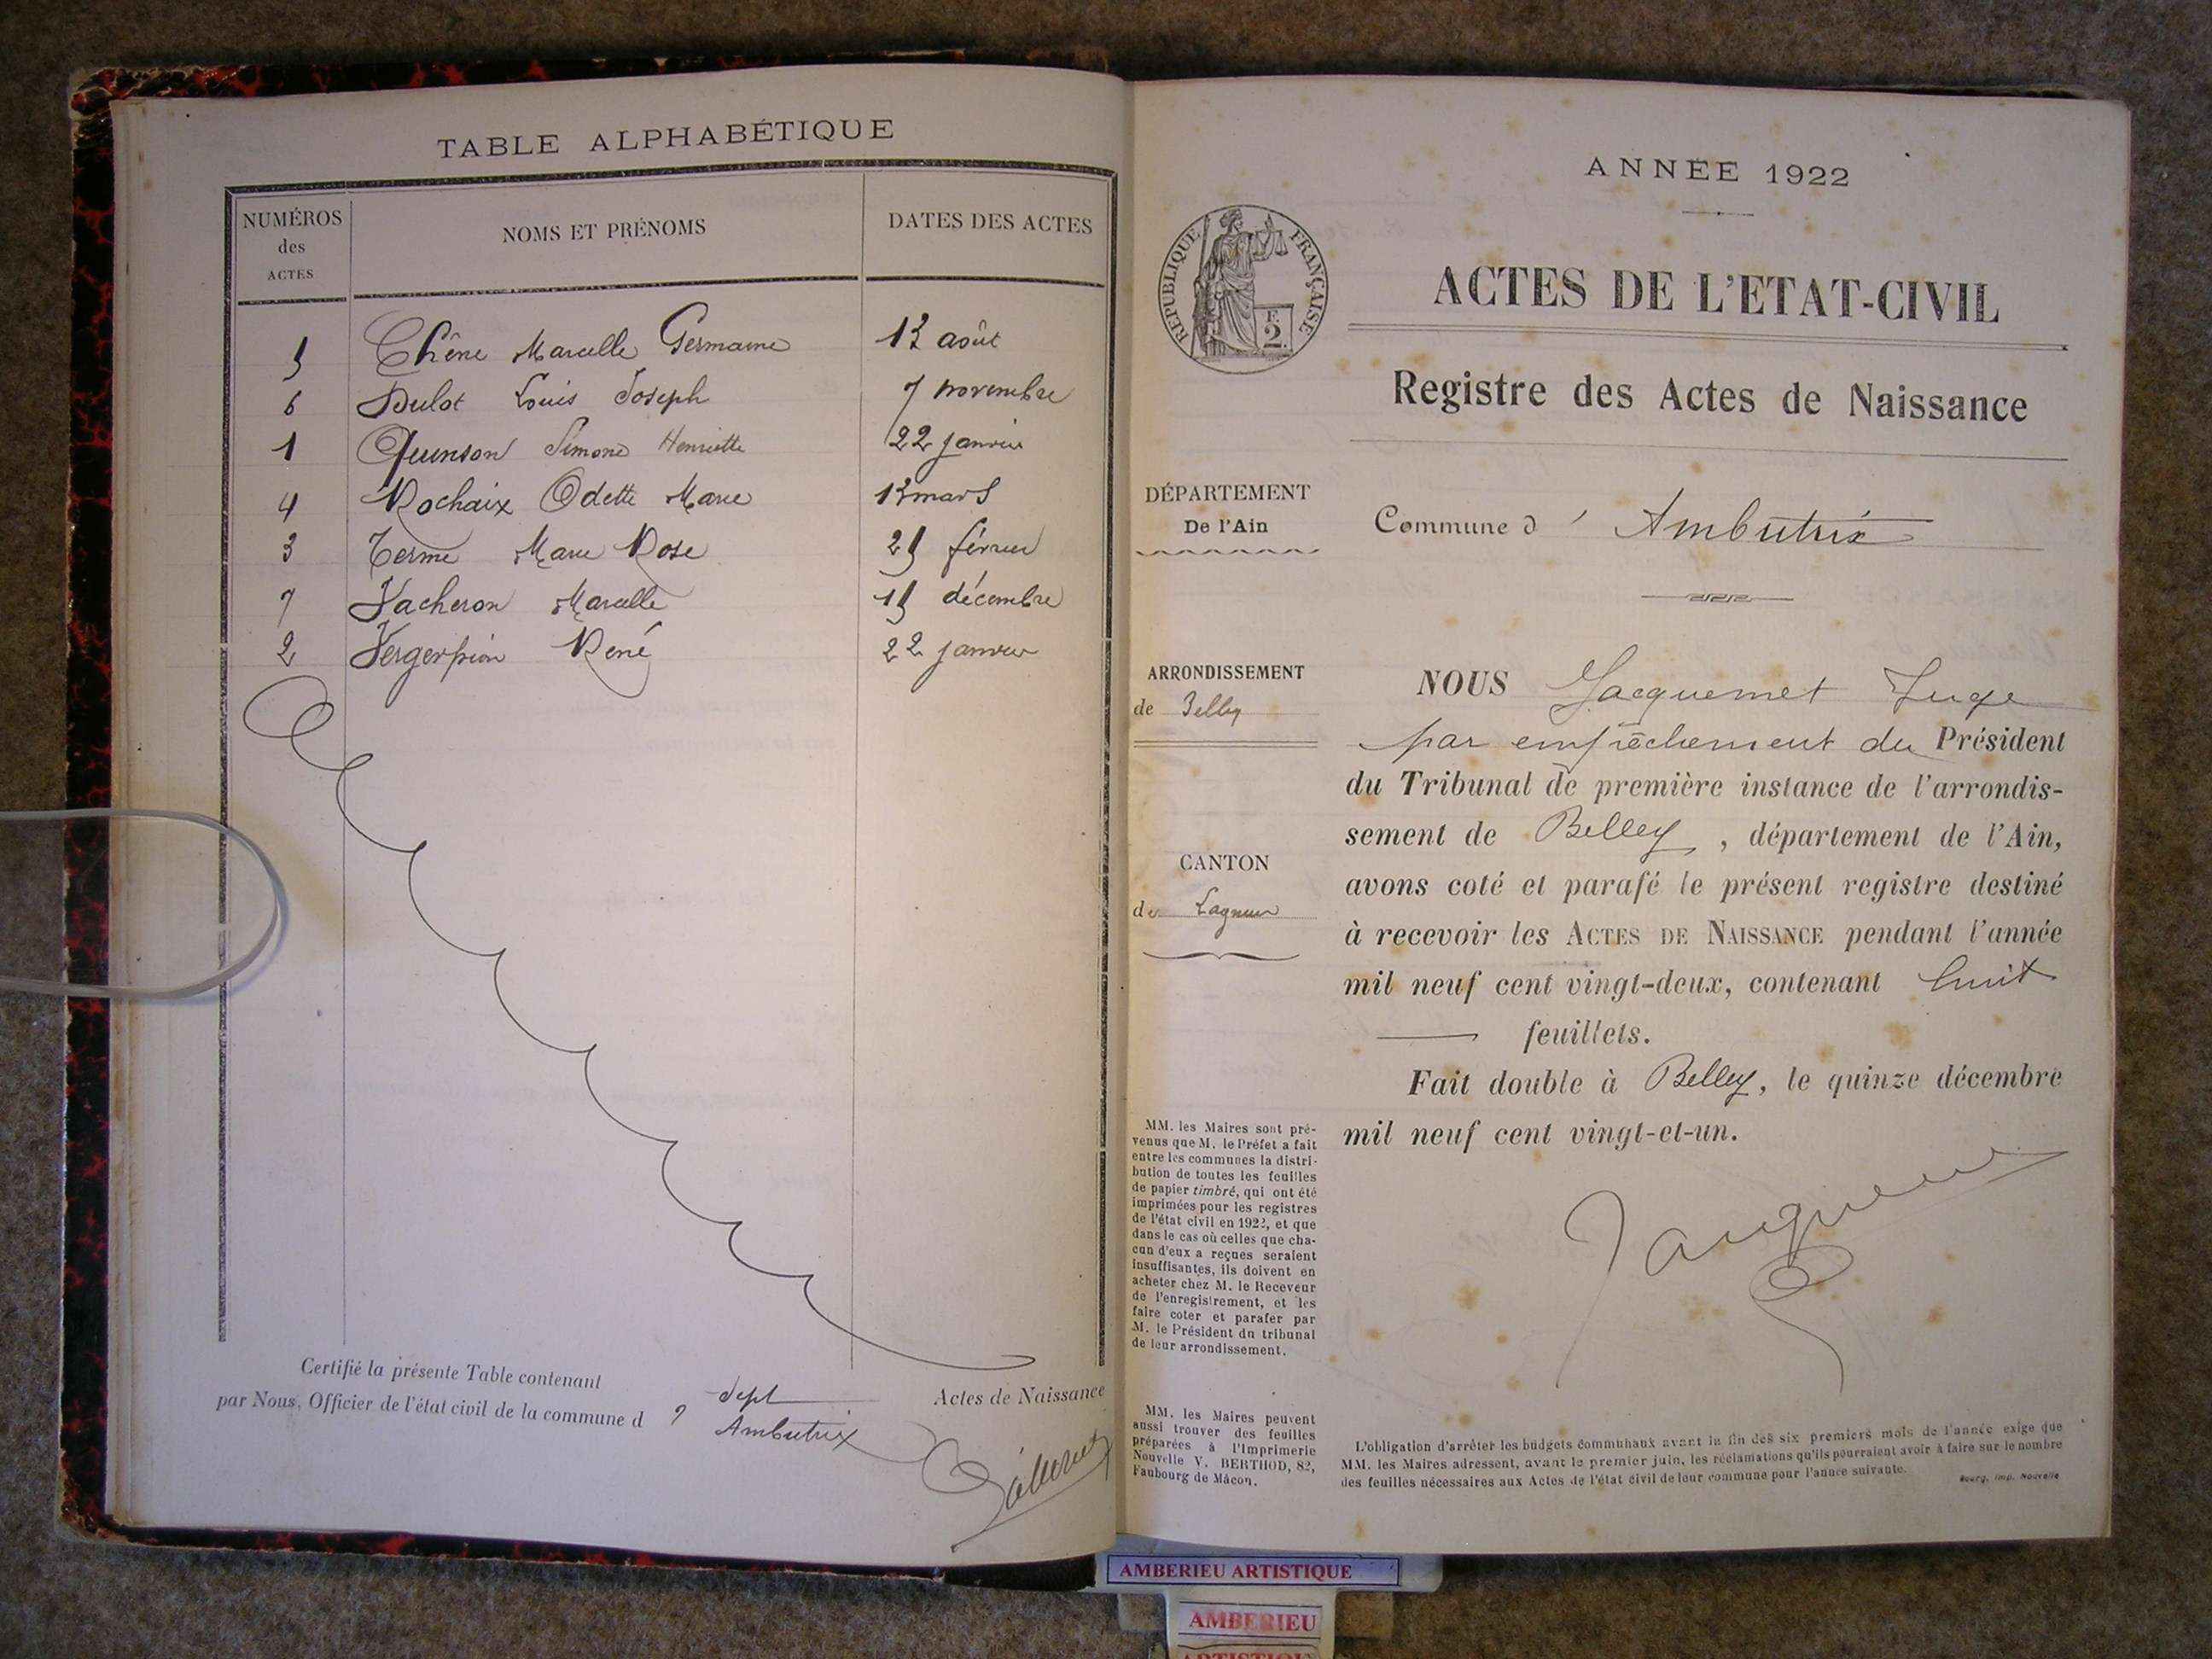 TABLE ALPHABÉTIQUE
NUMÉROS des ACTES
NOMS ET PRÉNOMS
DATES DES ACTES
5 Chêne Marcelle Germaine 13 août
6 Dulot Louis Joseph 7 novembre
1 Quinson Simone Henriette 22 janvier
4 Rochaix Odette Marie 13 mars
3 Terme Marie Rose 25 février
7 Vacheron Marcelle 15 décembre
2 Vergerpion René 22 janvier
Certifié la présente Table contenant sept Actes de Naissance
par Nous, Officier de l'état civil de la commune d' Ambutrix
ANNÉE 1922
RÉPUBLIQUE FRANÇAISE
F.
2.
ACTES DE L'ETAT-CIVIL
Registre des Actes de Naissance
DÉPARTEMENT
De l'Ain
Commune d' Ambutrix
ARRONDISSEMENT
de Belley
CANTON
de Lagnieu
MM. les Maires sont pré-
venus que M. le Préfet a fait
entre les communes la distri-
bution de toutes les feuilles
de papier timbré, qui ont été
imprimées pour les registres
de l'état civil en 1922, et que
dans le cas où celles que cha-
cun d'eux a reçues seraient
insuffisantes, ils doivent en
acheter chez M. le Receveur
de l'enregistrement, et les
faire coter et parafer par
M. le Président du tribunal
de leur arrondissement.
MM. les Maires peuvent
aussi trouver des feuilles
préparées à l'Imprimerie
Nouvelle V. BERTHOD, 82,
Faubourg de Mâcon.
NOUS Jacquemet Juge
par empêchement du Président
du Tribunal de première instance de l'arrondis-
sement de Belley, département de l'Ain,
avons coté et parafé le présent registre destiné
à recevoir les ACTES DE NAISSANCE pendant l'année
mil neuf cent vingt-deux, contenant huit
feuillets.
Fait double à Belley, le quinze décembre
mil neuf cent vingt-et-un.
L'obligation d'arrêter les budgets communaux avant la fin des six premiers mois de l'année exige que
MM. les Maires adressent, avant le premier juin, les réclamations qu'ils pourraient avoir à faire sur le nombre
des feuilles nécessaires aux Actes de l'état civil de leur commune pour l'année suivante.
Bourg, Imp. Nouvelle
AMBERIEU ARTISTIQUE
AMBERIEU
ARTISTIQUE